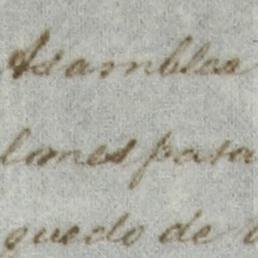 Asamblea
lones para
quedo de